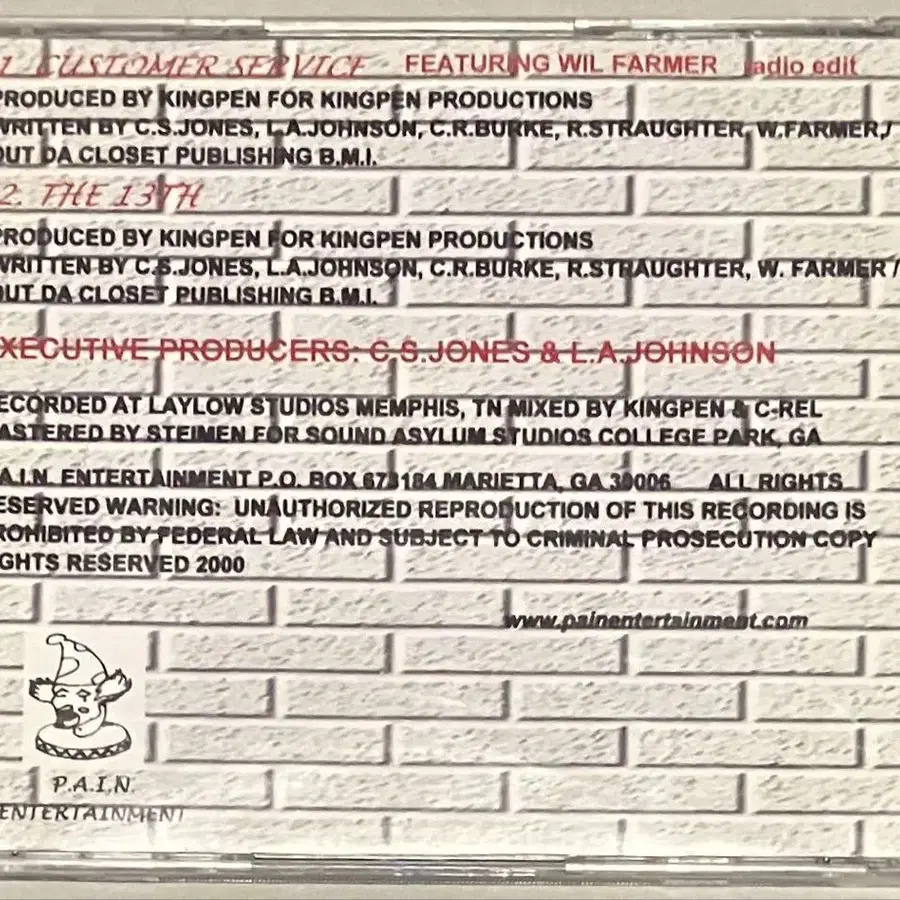 1. CUSTOMER SERVICE FEATURING WIL FARMER radio edit
PRODUCED BY KINGPEN FOR KINGPEN PRODUCTIONS
WRITTEN BY C.S.JONES, L.A.JOHNSON, C.R.BURKE, R.STRAUGHTER, W.FARMER /
OUT DA CLOSET PUBLISHING B.M.I.
2. THE 13TH
PRODUCED BY KINGPEN FOR KINGPEN PRODUCTIONS
WRITTEN BY C.S.JONES, L.A.JOHNSON, C.R.BURKE, R.STRAUGHTER, W. FARMER /
OUT DA CLOSET PUBLISHING B.M.I.
XECUTIVE PRODUCERS: C.S.JONES & L.A.JOHNSON
ECORDED AT LAYLOW STUDIOS MEMPHIS, TN MIXED BY KINGPEN & C-REL
ASTERED BY STEIMEN FOR SOUND ASYLUM STUDIOS COLLEGE PARK, GA
.A.I.N. ENTERTAINMENT P.O. BOX 673184 MARIETTA, GA 30006 ALL RIGHTS
ESERVED WARNING: UNAUTHORIZED REPRODUCTION OF THIS RECORDING IS
ROHIBITED BY FEDERAL LAW AND SUBJECT TO CRIMINAL PROSECUTION COPY
GHTS RESERVED 2000
www.painentertainment.com
P.A.I.N.
ENTERTAINMENT